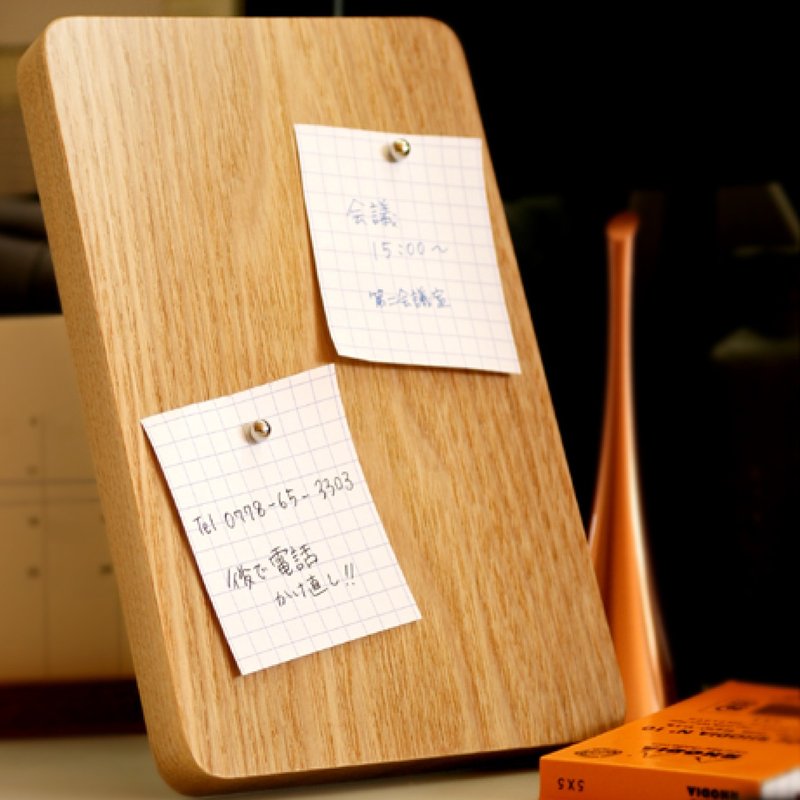 会議
15:00〜
第二会議室
Tel 0778-65-3303
後で電話
かけ直し!!
RHODIA Nº10
RHODIA
5X5